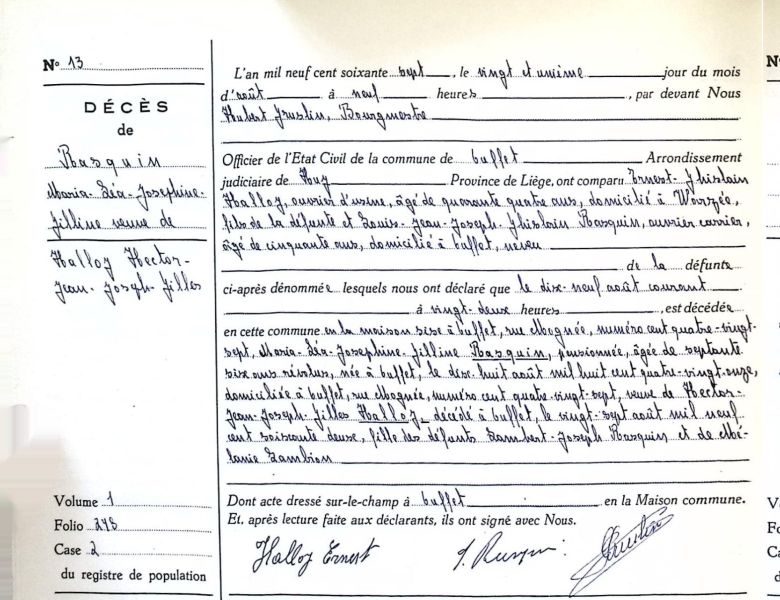 N° 13
DÉCÈS
de
Rasquin
Maria-Léa-Josephine-
Jilline veuve de
Halloy Hector-
Jean-Joseph-Jilles
Volume 1
Folio 243
Case 2
du registre de population
L'an mil neuf cent soixante sept, le vingt et unième jour du mois
d'août à neuf heures, par devant Nous
Hubert Bourgmestre
Officier de l'Etat Civil de la commune de Ouffet Arrondissement
judiciaire de Huy Province de Liège, ont comparu Ernest-Ghislain
Halloy, ouvrier d'usine, âgé de quarante quatre ans, domicilié à Warzée,
fils de la défunte et Louis-Jean-Joseph-Ghislain Rasquin, ouvrier carrier,
âgé de cinquante ans, domicilié à Ouffet, neveu
de la défunte
ci-après dénommée lesquels nous ont déclaré que le dix-neuf août courant
à vingt-deux heures, est décédée
en cette commune en la maison sise à Ouffet, rue Mognée, numéro cent quatre-vingt-
sept, Maria-Léa-Josephine-Jilline Rasquin, pensionnée, âgée de septante
six ans révolus, née à Ouffet, le dix-huit août mil huit cent quatre-vingt-onze,
domiciliée à Ouffet, rue Mognée, numéro cent quatre-vingt-sept, veuve de Hector-
Jean-Joseph-Jilles Halloy, décédé à Ouffet, le vingt-sept août mil neuf
cent soixante deux, fille des défunts Lambert-Joseph Rasquin et de Mé-
lanie Lambion
Dont acte dressé sur-le-champ à Ouffet en la Maison commune.
Et, après lecture faite aux déclarants, ils ont signé avec Nous.
Halloy Ernest